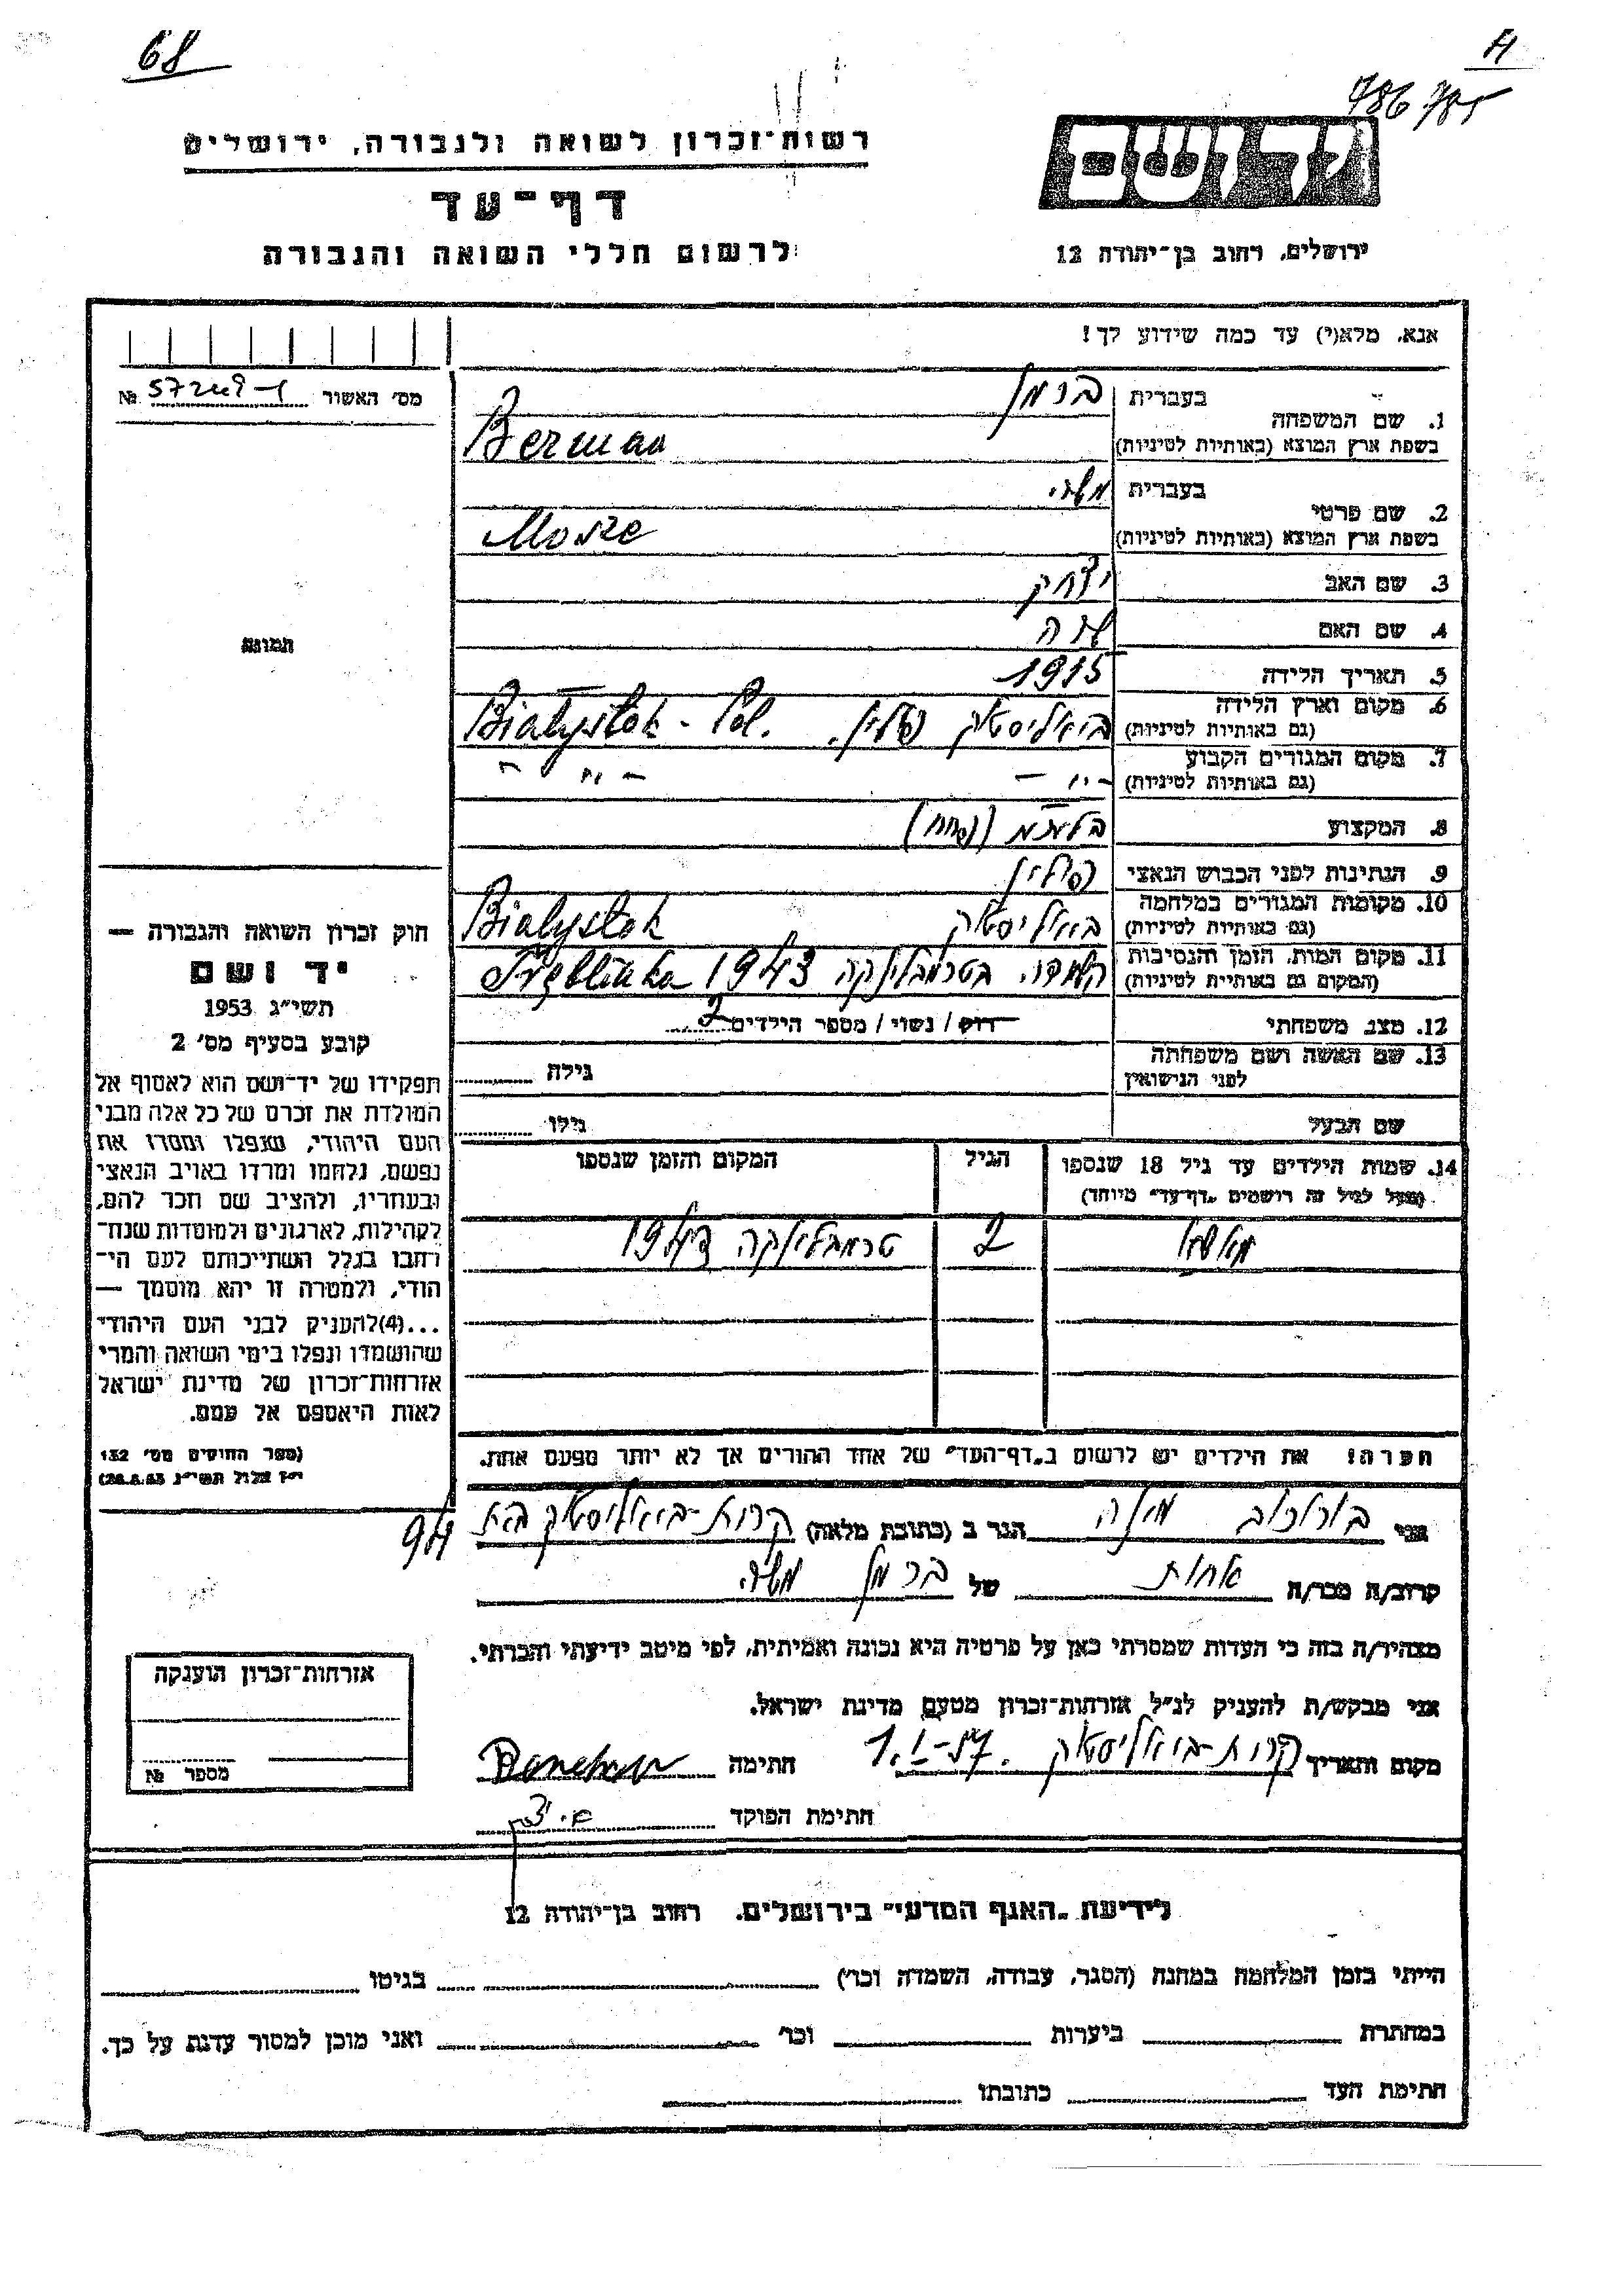 68
786 785
ידושם
רשות־זכרון לשואה ולגבורה, ירושלים
דף־עד
לרשום חללי השואה והגבורה
ירושלים, רחוב בן־יהודה 12
אנא, מלא(י) עד כמה שידוע לך!
מס׳ האשור №
1. שם המשפחה
בעברית ברמן
בשפת ארץ המוצא (באותיות לטיניות) Berman
2. שם פרטי
בעברית משה
בשפת ארץ המוצא (באותיות לטיניות) Mosze
3. שם האב יצחק
4. שם האם
5. תאריך הלידה 1915
6. מקום וארץ הלידה
(גם באותיות לטיניות) ביאליסטוק פולין. Białystok - Pol.
7. מקום המגורים הקבוע
(גם באותיות לטיניות) – " – – " –
8. המקצוע
9. הנתינות לפני הכבוש הנאצי פולין
10. מקומות המגורים במלחמה
(גם באותיות לטיניות) ביאליסטוק Białystok
11. מקום המות, הזמן והנסיבות
(המקום גם באותיות לטיניות) בטרמבלינקה 1943 Tręblinka
12. מצב משפחתי רוק / נשוי / מספר הילדים 2
13. שם האשה ושם משפחתה
לפני הנישואין
גילה
שם הבעל גילו
14. שמות הילדים עד גיל 18 שנספו
(מעל לגיל זה רושמים „דף־עד״ מיוחד)
הגיל
המקום והזמן שנספו
2 טרמבלינקה 1943
הערה! את הילדים יש לרשום ב„דף־העד״ של אחד ההורים אך לא יותר מפעם אחת.
תמונה
חוק זכרון השואה והגבורה —
יד ושם
תשי״ג 1953
קובע בסעיף מס׳ 2
תפקידו של יד־ושם הוא לאסוף אל
המולדת את זכרם של כל אלה מבני
העם היהודי, שנפלו ומסרו את
נפשם, נלחמו ומרדו באויב הנאצי
ובעוזריו, ולהציב שם וזכר להם,
לקהילות, לארגונים ולמוסדות שנח־
רחבו בגלל השתייכותם לעם הי־
הודי, ולמטרה זו יהא מוסמך —
...(4) להעניק לבני העם היהודי
שהושמדו ונפלו בימי השואה והמרי
אזרחות־זכרון של מדינת ישראל
לאות היאספם אל עמם.
(ספר החוקים מס׳ 132
י״ז אלול תשי״ג 28.8.53)
אני בורוכוב הגר ב (כתובת מלאה) קרית־ביאליסטוק בית
94
קרוב/ה מכר/ה אחות של ברמן משה
מצהיר/ה בזה כי העדות שמסרתי כאן על פרטיה היא נכונה ואמיתית, לפי מיטב ידיעתי והכרתי.
אני מבקש/ת להעניק לנ״ל אזרחות־זכרון מטעם מדינת ישראל.
מקום ותאריך קרית־ביאליסטוק 1.I-57. חתימה
חתימת הפוקד
אזרחות־זכרון הוענקה
מספר №
לידיעת „האגף המדעי״ בירושלים, רחוב בן־יהודה 12
הייתי בזמן המלחמה במחנה (הסגר, עבודה, השמדה וכו׳) בגיטו
במחתרת ביערות וכו׳ ואני מוכן למסור עדות על כך.
חתימת העד כתובתו